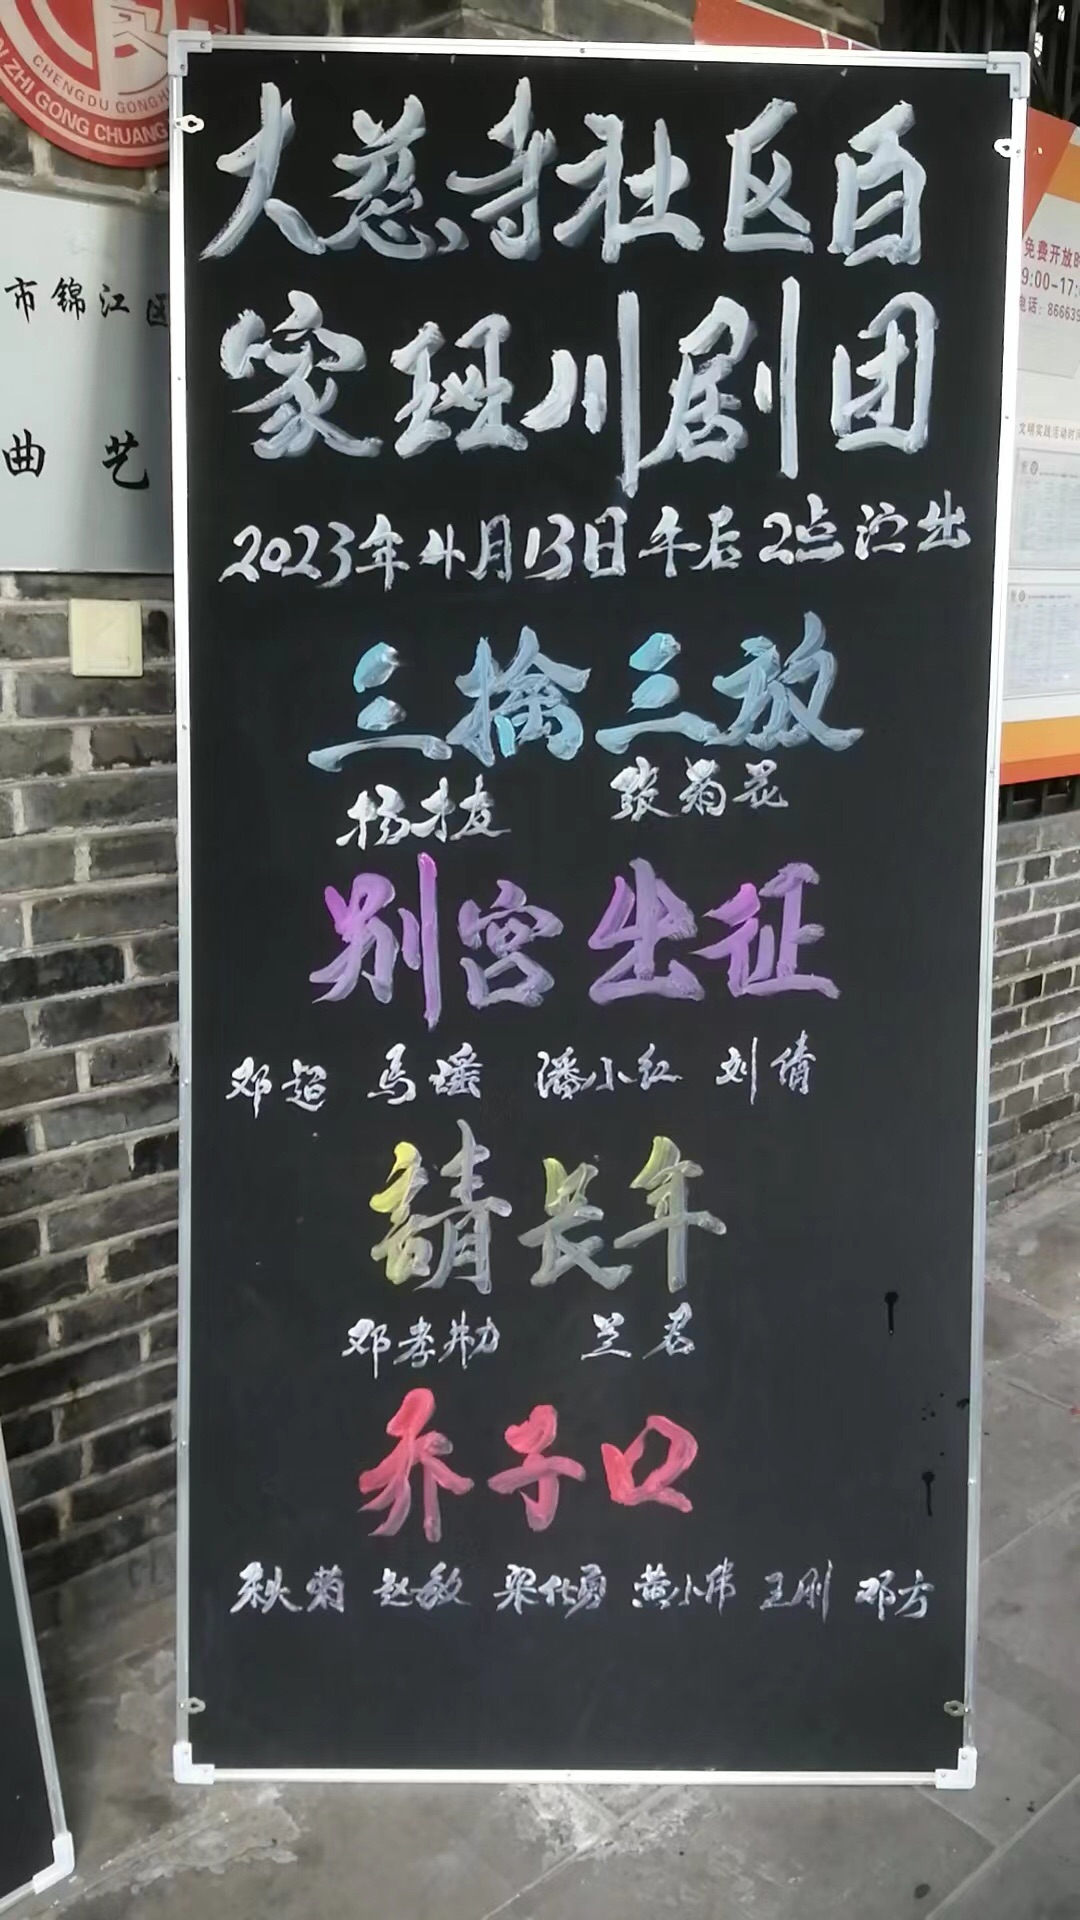 CHENGDU GONGH
ZHI GONG CHUANG
市锦江区
曲艺
免费开放时
9:00-17:
电话：866639
文明实践活动时间
大慈寺社区百
家班川剧团
2023年4月13日午后2点演出
三擒三放
杨才友 张菊花
别宫出征
邓超 马瑶 潘小红 刘倩
請长年
邓孝勋 兰君
乔子口
秋菊 赵敏 梁仕勇 黄小伟 王刚 邓方